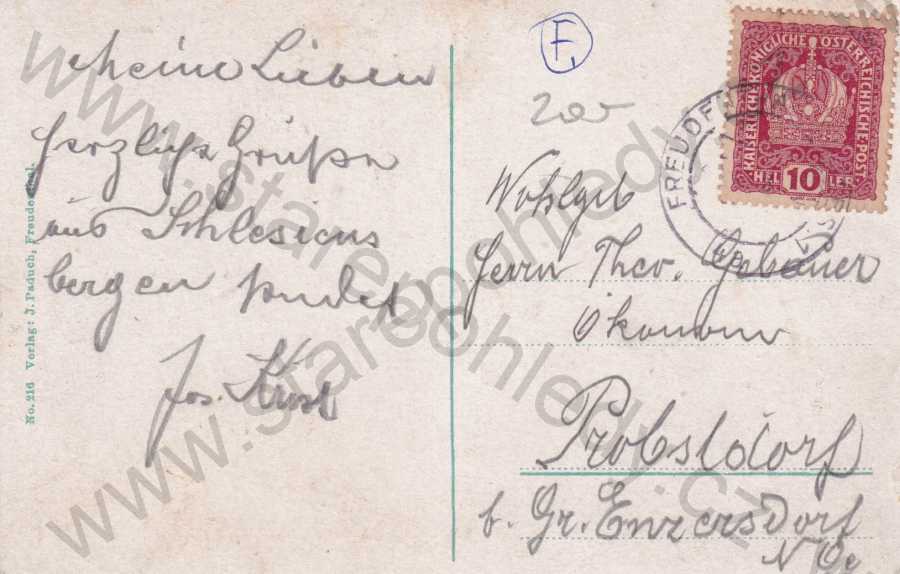 Meine Lieben
herzliche Grüße
aus Schlesiens
bergen sendet
Jos.
No. 216 Verlag: J. Paduch, Freudenthal.
F.
KAISERLICHE KÖNIGLICHE ÖSTERREICHISCHE POST
HEL 10 LER
FREUDE
Wohlgeb
Herrn Theo. Gebauer
Ökonom
Probstdorf
b. Gr. Enzersdorf
N Oe
www.starepohledy.cz
www.starepohledy.cz